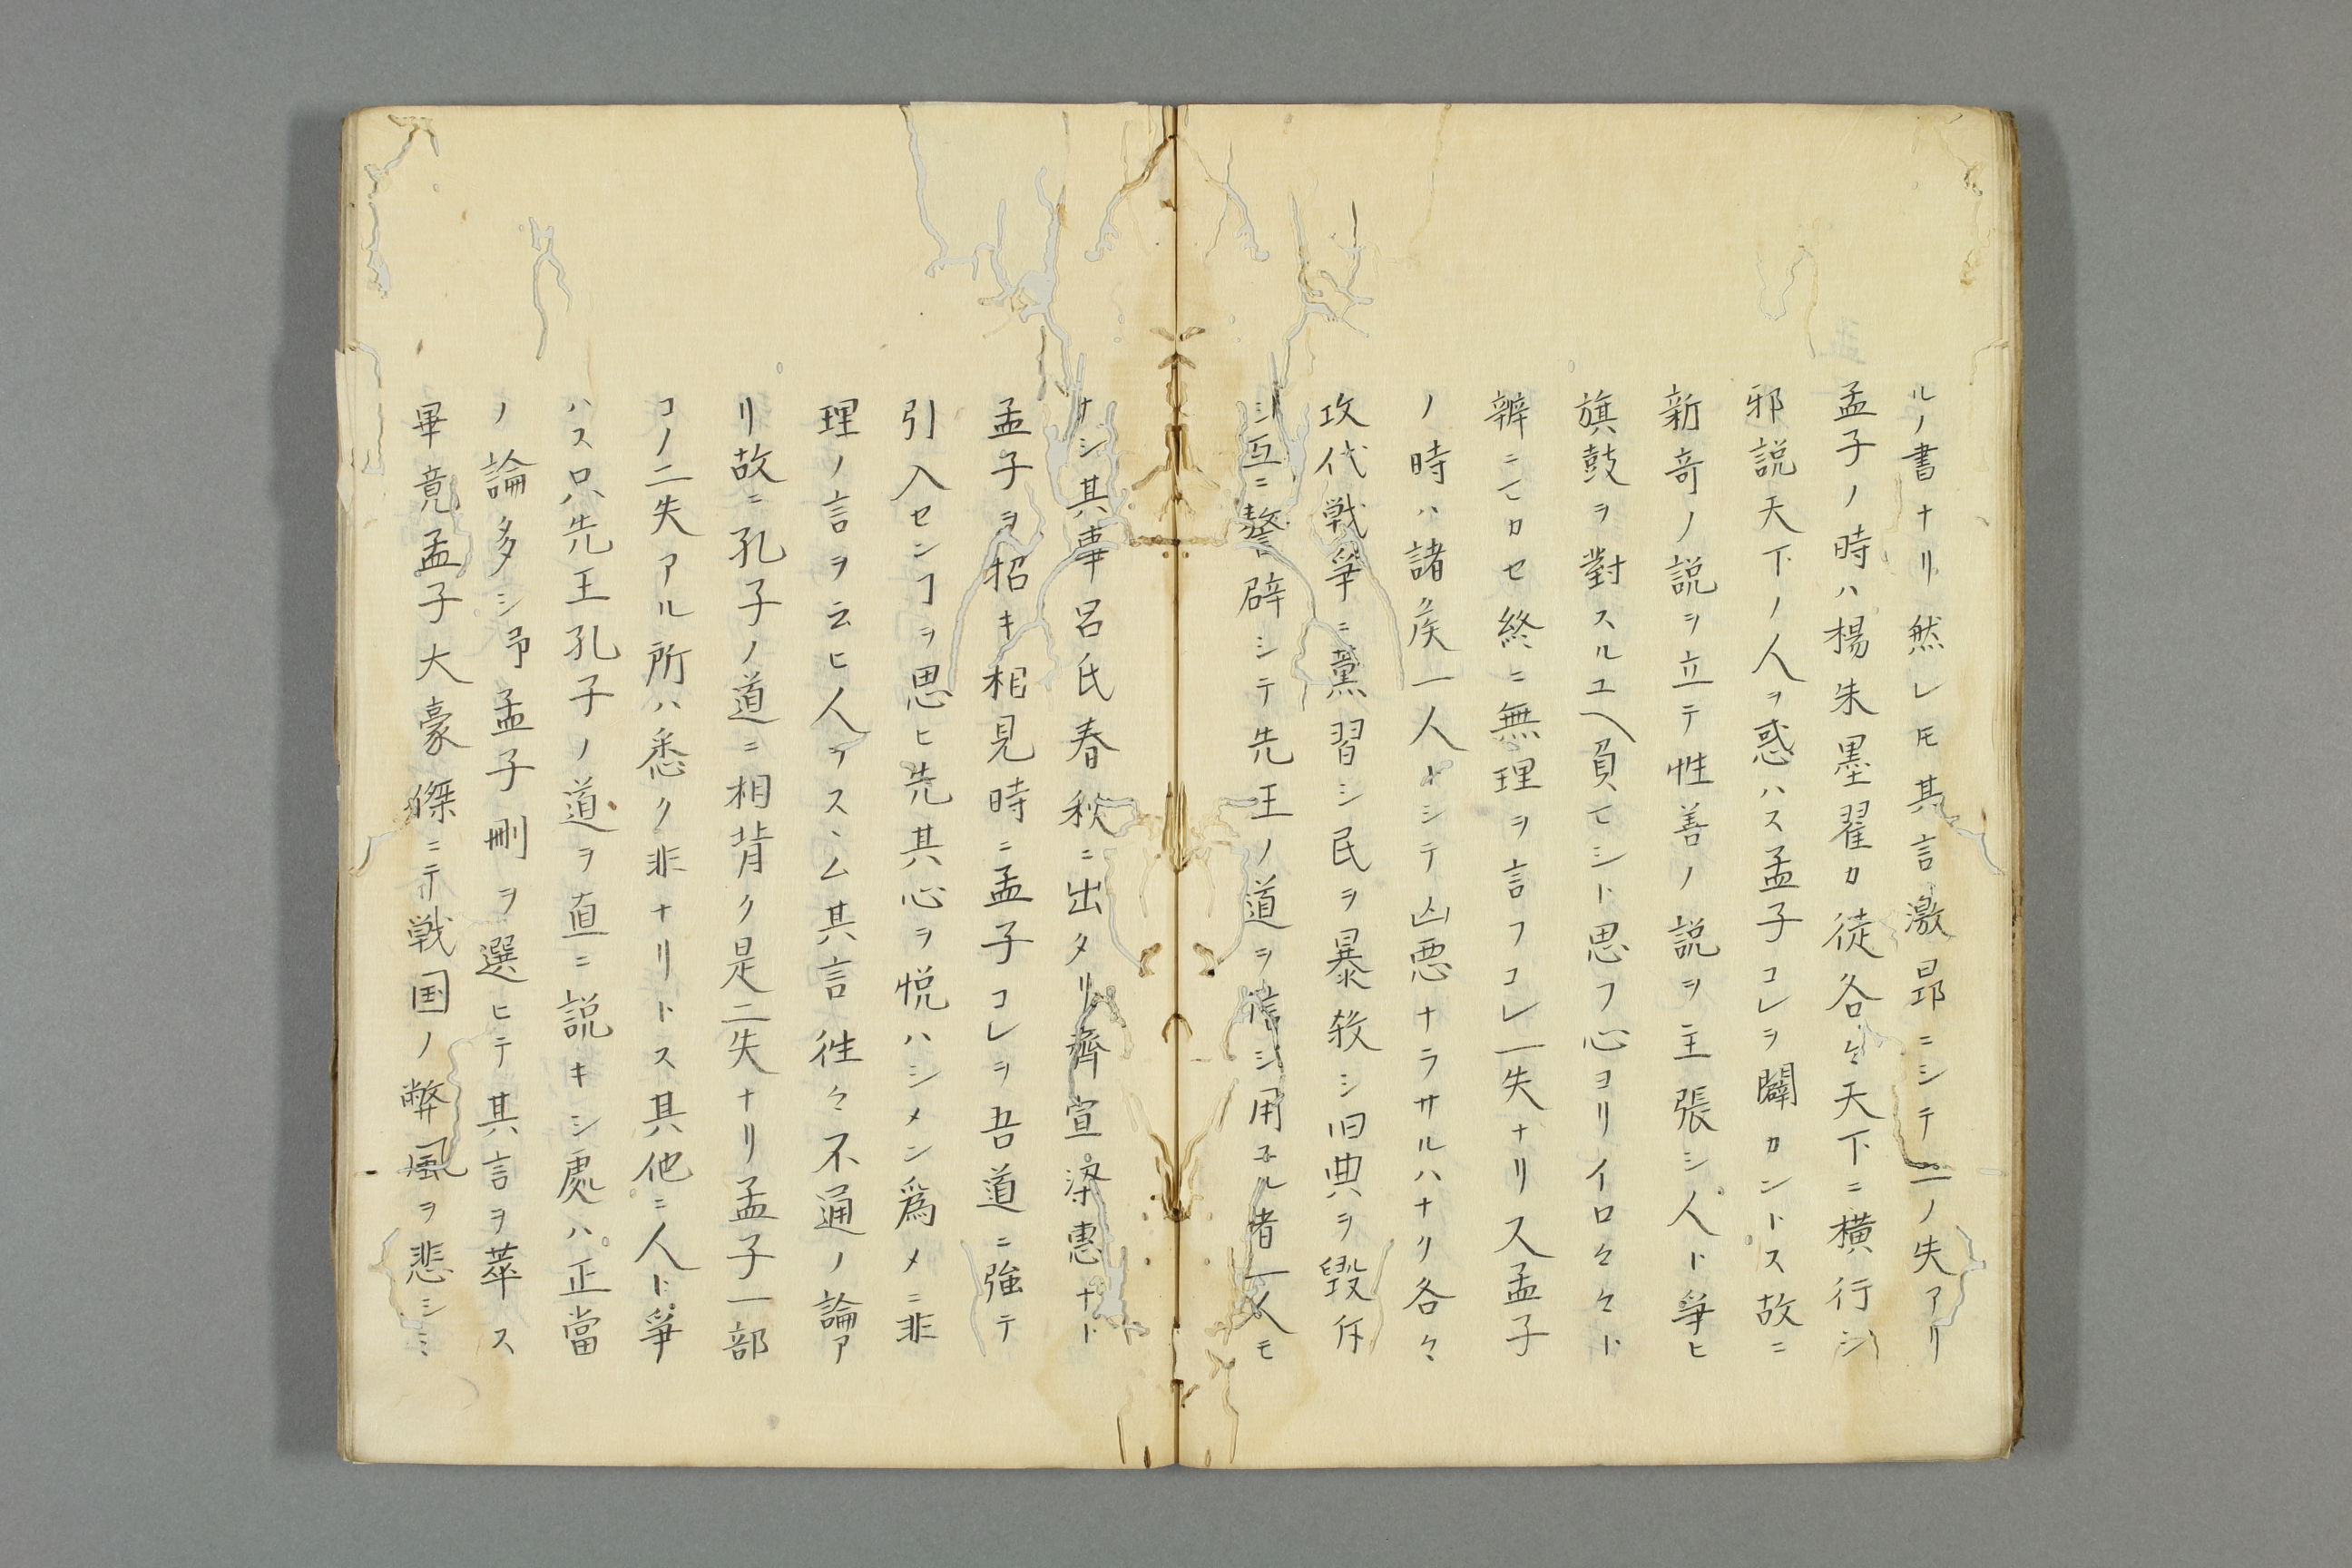 ルノ書ナリ然レ𪜈其言激昻ニシテ一ノ失アリ
孟子ノ時ハ楊朱墨翟カ徒各々天下ニ横行シ
邪説天下ノ人ヲ惑ハス孟子コレヲ闢カントス故ニ
新奇ノ説ヲ立テ性善ノ説ヲ主張シ人ト爭ヒ
旗鼓ヲ對スルユヘ負マシト思フ心ヨリイロ々々ト
辨ニマカセ終ニ無理ヲ言フコレ一失ナリ又孟子
ノ時ハ諸矦一人トシテ凶悪ナラサルハナク各々
攻伐戦爭ニ薫習シ民ヲ暴殺シ旧典ヲ毀斥
シ互ニ謷辟シテ先王ノ道ヲ信シ用ユル者一人モ
ナシ其事呂氏春秋ニ出タリ齊宣梁惠ナト
孟子ヲ招キ相見時ニ孟子コレヲ吾道ニ強テ
引入センヿヲ思ヒ先其心ヲ悦ハシメン爲メニ非
理ノ言ヲ云ヒ人ヲスヽム其言徃々不通ノ論ア
リ故ニ孔子ノ道ニ相背ク是二失ナリ孟子一部
コノ二失アル所ハ悉ク非ナリトス其他ニ人ト爭
ハス只先王孔子ノ道ヲ直ニ説キシ處ハ正當
ノ論多シ予孟子刪ヲ選ヒテ其言ヲ萃ス
畢竟孟子大豪傑ニテ戦国ノ弊風ヲ悲シミ